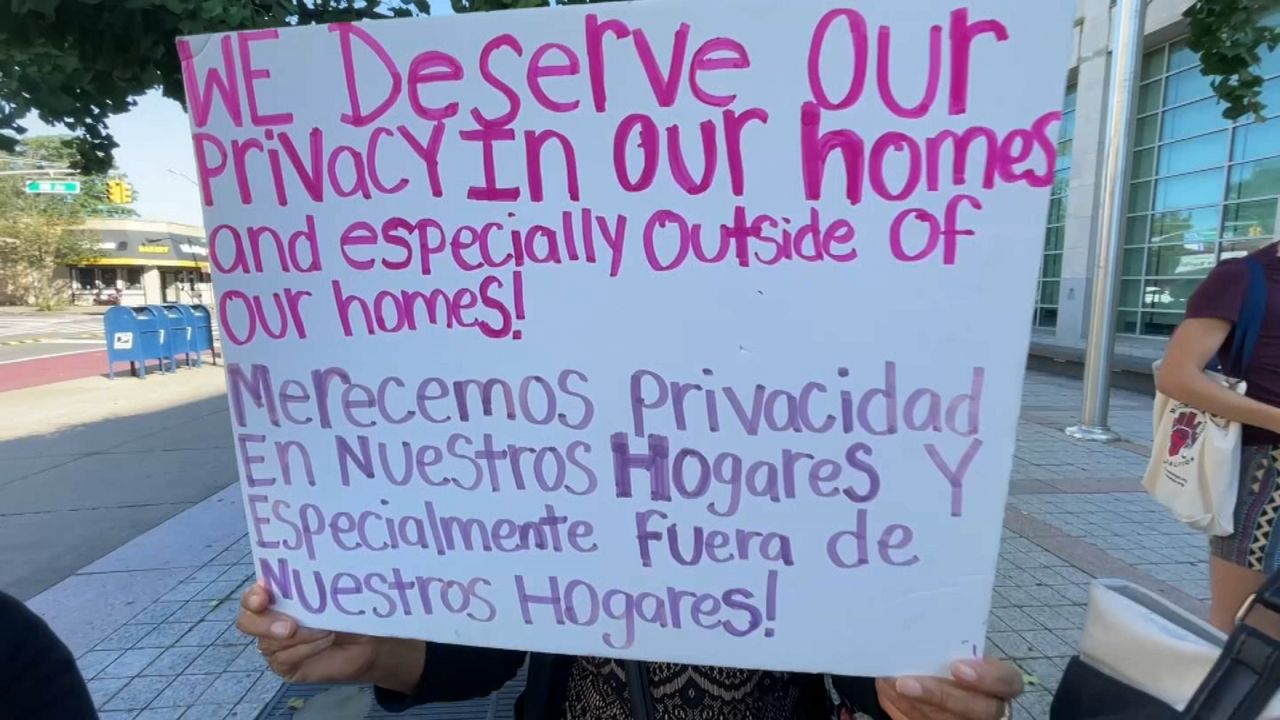 WE Deserve Our
Privacy In Our homes
and especially Outside of
Our homes!
Merecemos Privacidad
En Nuestros Hogares Y
Especialmente Fuera de
Nuestros Hogares!
BAKERY